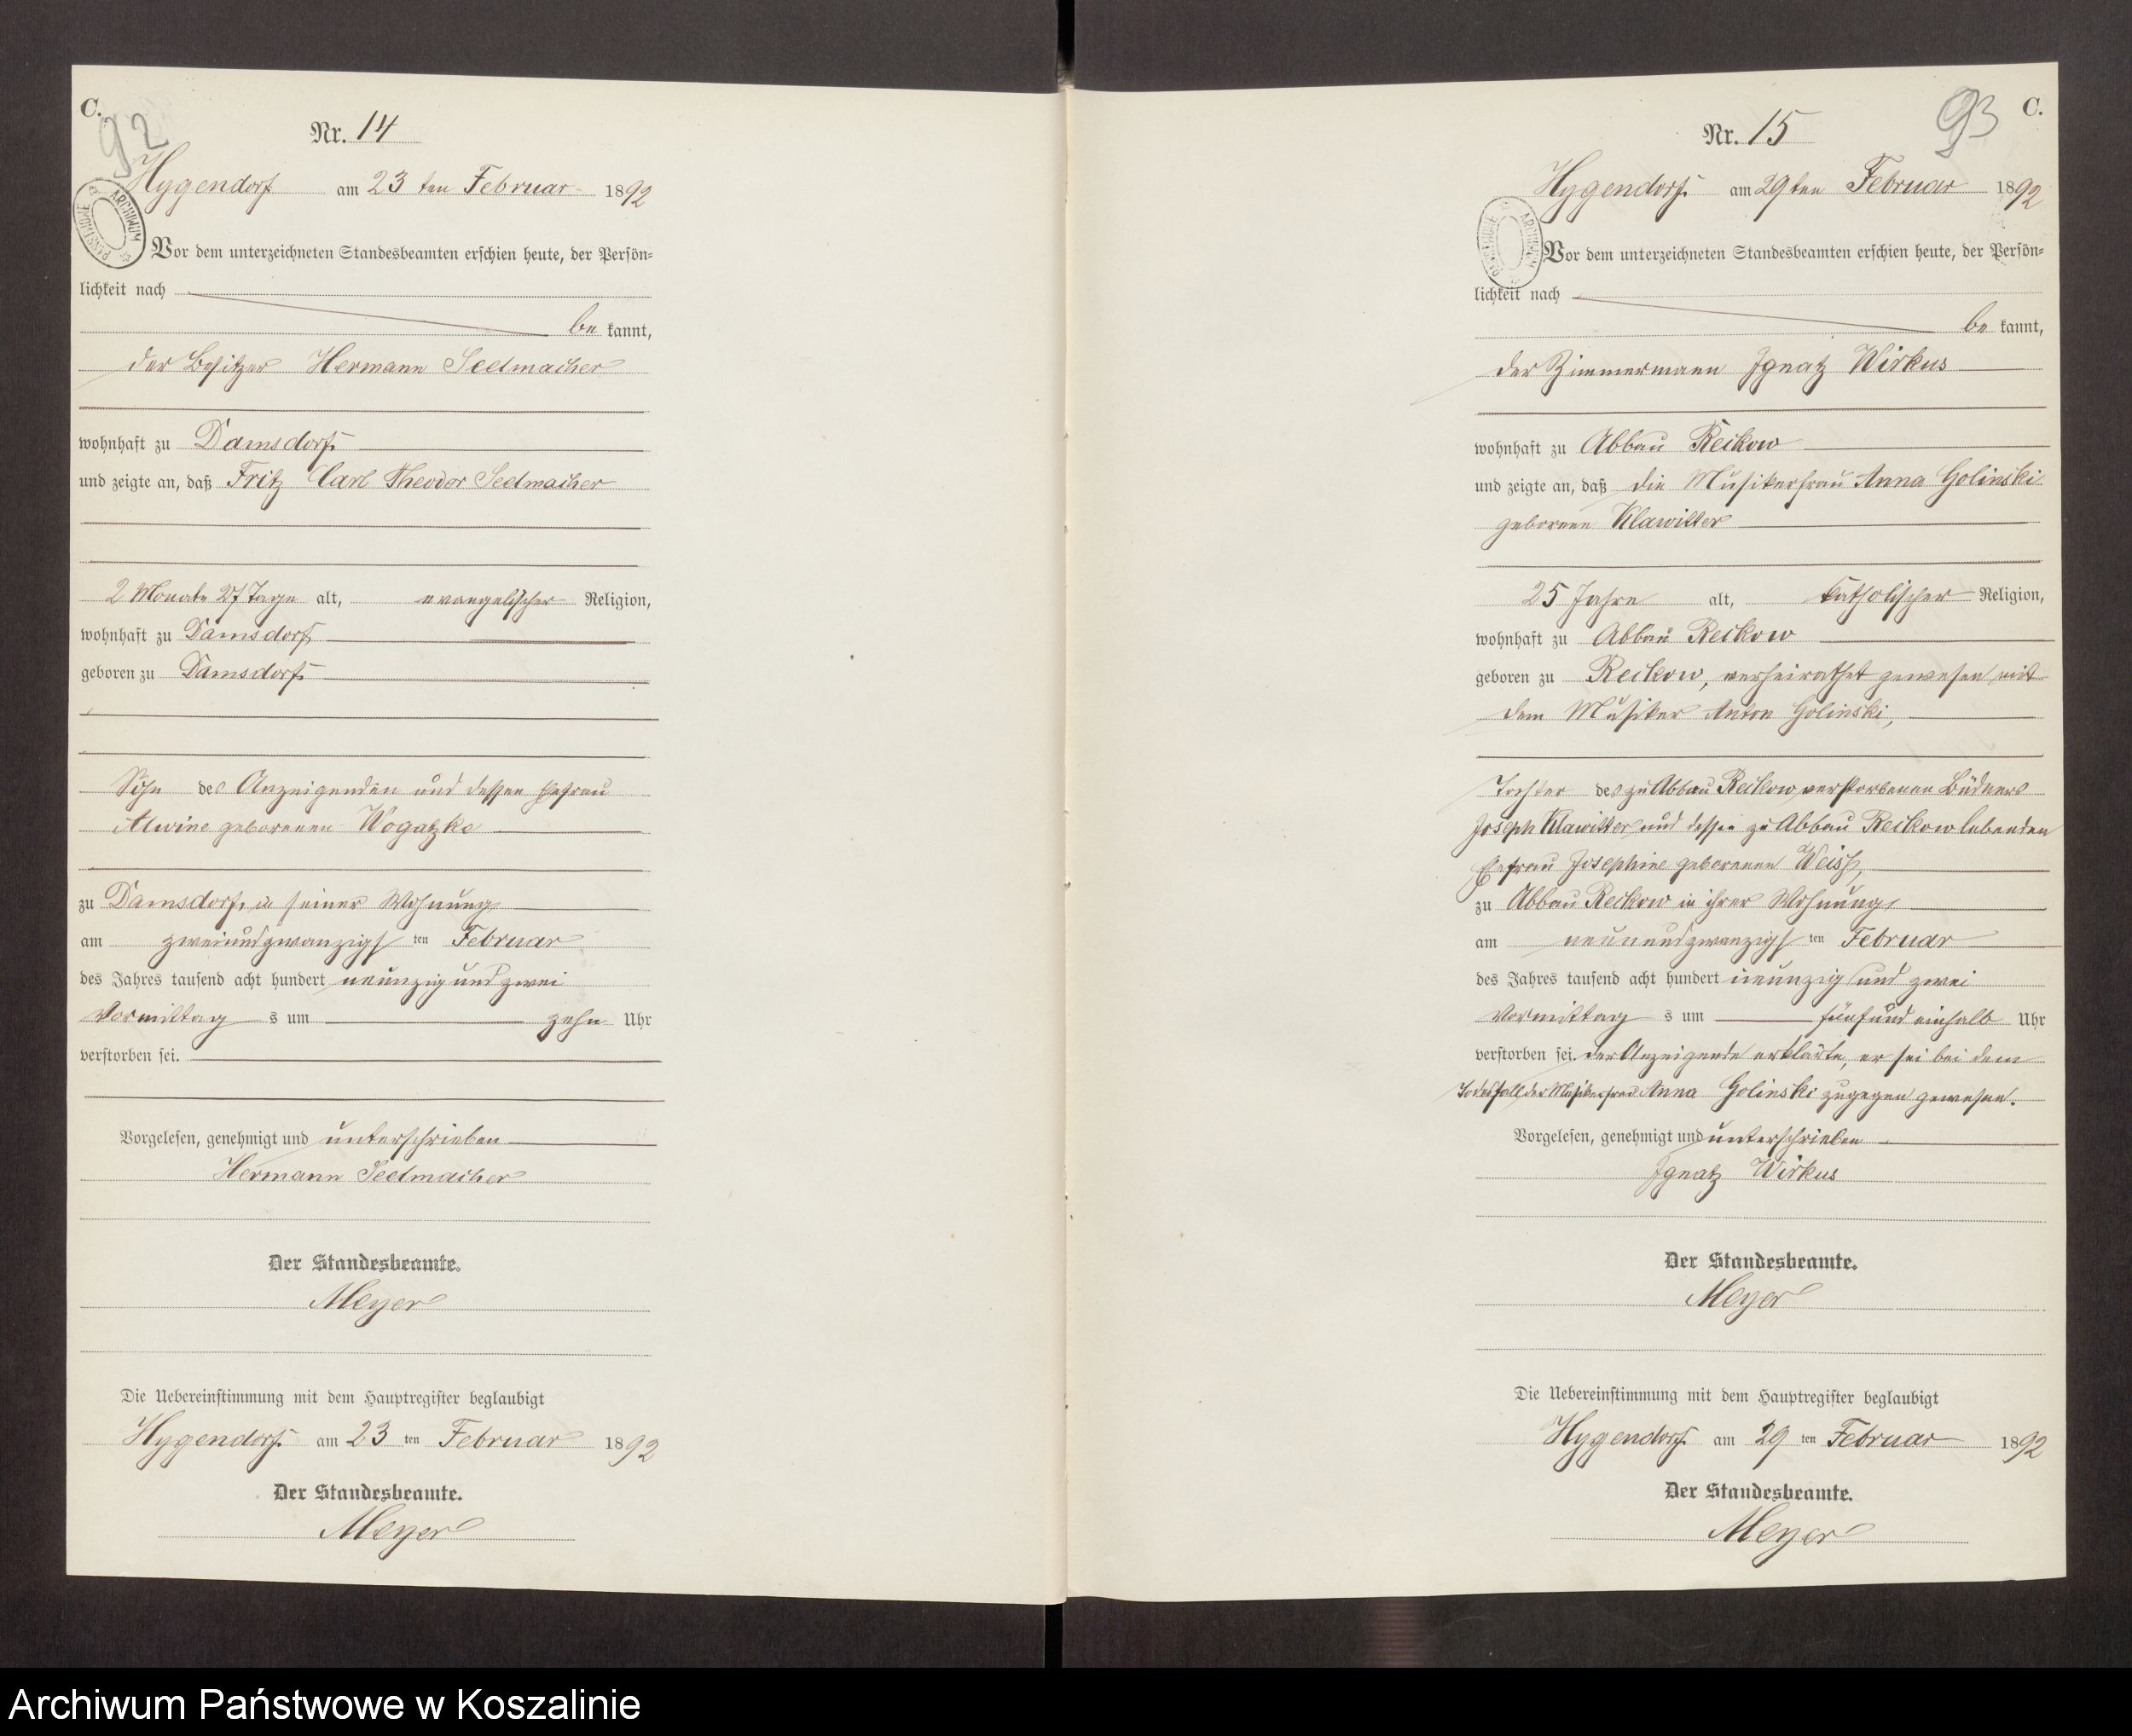 C.
92
Nr. 14
Hygendorf am 23 ten Februar 1892
ARCHIWUM PAŃSTWOWE
Vor dem unterzeichneten Standesbeamten erschien heute, der Persön-
lichkeit nach
be kannt,
der Besitzer Hermann Seelmacher
wohnhaft zu Damsdorf
und zeigte an, daß Fritz Carl Theodor Seelmacher
2 Monate 27 Tage alt, evangelischer Religion,
wohnhaft zu Damsdorf
geboren zu Damsdorf
Sohn des Anzeigenden und dessen Ehefrau
Alwine geborenen Wogatzke
zu Damsdorf, in seiner Wohnung
am zweiundzwanzigs ten Februar
des Jahres tausend acht hundert neunzig und zwei
Vormittag s um zehn Uhr
verstorben sei.
Vorgelesen, genehmigt und unterschrieben
Hermann Seelmacher
Der Standesbeamte.
Meyer
Die Uebereinstimmung mit dem Hauptregister beglaubigt
Hygendorf am 23 ten Februar 1892
Der Standesbeamte.
Meyer
93 C.
Nr. 15
Hygendorf am 29 ten Februar 1892
ARCHIWUM PAŃSTWOWE
Vor dem unterzeichneten Standesbeamten erschien heute, der Persön-
lichkeit nach
be kannt,
der Zimmermann Ignatz Wirkus
wohnhaft zu Abbau Reckow
und zeigte an, daß die Musikerfrau Anna Golinski
geborene Klawitter
25 Jahre alt, katholischer Religion,
wohnhaft zu Abbau Reckow
geboren zu Reckow, verheirathet gewesen mit
dem Musiker Anton Golinski,
Tochter des zu Abbau Reckow verstorbenen Büdners
Joseph Klawitter und dessen zu Abbau Reckow lebenden
Ehefrau Josephine geborenen Weiß,
zu Abbau Reckow in ihrer Wohnung
am neunundzwanzigs ten Februar
des Jahres tausend acht hundert neunzig und zwei
Vormittag s um fünf und einhalb Uhr
verstorben sei. Der Anzeigende erklärte, er sei bei dem
Todesfall der Musikerfrau Anna Golinski zugegen gewesen.
Vorgelesen, genehmigt und unterschrieben
Ignatz Wirkus
Der Standesbeamte.
Meyer
Die Uebereinstimmung mit dem Hauptregister beglaubigt
Hygendorf am 29 ten Februar 1892
Der Standesbeamte.
Meyer
Archiwum Państwowe w Koszalinie